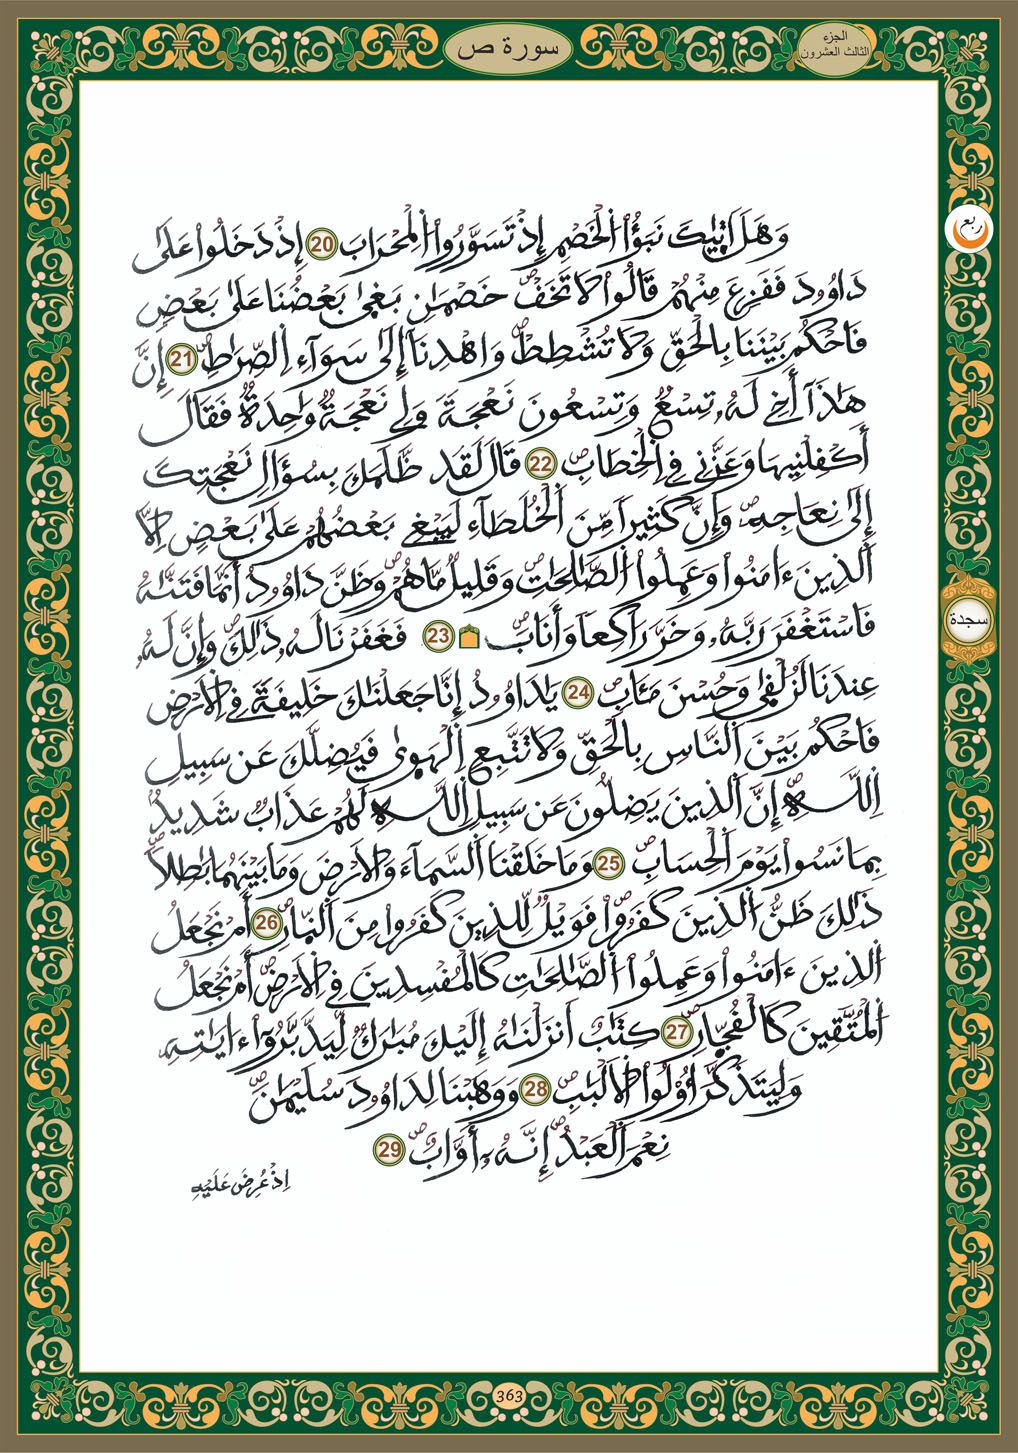 سورة ص
الجزء
الثالث العشرون
ربع
وَهَلَ اَتٰيٰكَ نَبَؤُاْ اُلْخَصْمِ إِذْ تَسَوَّرُواْ اُلْمِحْرَابَ 20 إِذْ دَخَلُواْ عَلَىٰ
دَاوُۥدَ فَفَزِعَ مِنْهُمْ قَالُواْ لَا تَخَفْۖ خَصْمَٰنِ بَغَىٰ بَعْضُنَا عَلَىٰ بَعْضٖ
فَاحْكُم بَيْنَنَا بِالْحَقِّ وَلَا تُشْطِطْۖ وَاهْدِنَا إِلَىٰ سَوَآءِ اِ۬لصِّرَٰطِۖ 21 إِنَّ
هَٰذَآ أَخِے لَهُۥ تِسْعٞ وَتِسْعُونَ نَعْجَةٗ وَلِے نَعْجَةٞ وَٰحِدَةٞۖ فَقَالَ
أَكْفِلْنِيهَا وَعَزَّنِے فِے اِ۬لْخِطَابِۖ 22 قَالَ لَقَد ظَّلَمَكَ بِسُؤَالِ نَعْجَتِكَ
إِلَىٰ نِعَاجِهِۦۖ وَإِنَّ كَثِيراٗ مِّنَ اَ۬لْخُلَطَآءِ لَيَبْغِے بَعْضُهُمْ عَلَىٰ بَعْضٍ اِلَّا
اَ۬لذِينَ ءَامَنُواْ وَعَمِلُواْ اُ۬لصَّٰلِحَٰتِۖ وَقَلِيلٞ مَّا هُمْۖ وَظَنَّ دَاوُۥدُ أَنَّمَا فَتَنَّٰهُ
فَاسْتَغْفَرَ رَبَّهُۥ وَخَرَّ رَاكِعاٗ وَأَنَابَۖ 23 فَغَفَرْنَا لَهُۥ ذَٰلِكَۖ وَإِنَّ لَهُۥ
عِندَنَا لَزُلْفَىٰ وَحُسْنَ مَـَٔابٖۖ 24 يَٰدَاوُۥدُ إِنَّا جَعَلْنَٰكَ خَلِيفَةٗ فِے اِ۬لَارْضِ
فَاحْكُم بَيْنَ اَ۬لنَّاسِ بِالْحَقِّ وَلَا تَتَّبِعِ اِ۬لْهَوَىٰ فَيُضِلَّكَ عَن سَبِيلِ
اِ۬للَّهِۖ إِنَّ اَ۬لذِينَ يَضِلُّونَ عَن سَبِيلِ اِ۬للَّهِ لَهُمْ عَذَابٞ شَدِيدُۢ
بِمَا نَسُواْ يَوْمَ اَ۬لْحِسَابِۖ 25 وَمَا خَلَقْنَا اَ۬لسَّمَآءَ وَالَارْضَ وَمَا بَيْنَهُمَا بَٰطِلاٗۖ
ذَٰلِكَ ظَنُّ اُ۬لذِينَ كَفَرُواْۖ فَوَيْلٞ لِّلذِينَ كَفَرُواْ مِنَ اَ۬لنّ۪ارِۖ 26 أَمْ نَجْعَلُ
اُ۬لذِينَ ءَامَنُواْ وَعَمِلُواْ اُ۬لصَّٰلِحَٰتِ كَالْمُفْسِدِينَ فِے اِ۬لَارْضِۖ أَمْ نَجْعَلُ
اُ۬لْمُتَّقِينَ كَالْفُجّ۪ارِۖ 27 كِتَٰبٌ اَنزَلْنَٰهُ إِلَيْكَ مُبَٰرَكٞ لِّيَدَّبَّرُوٓاْ ءَايَٰتِهِۦ
وَلِيَتَذَكَّرَ أُوْلُواْ اُ۬لَالْبَٰبِۖ 28 وَوَهَبْنَا لِدَاوُۥدَ سُلَيْمَٰنَۖ
نِعْمَ اَ۬لْعَبْدُۖ إِنَّهُۥٓ أَوَّابٌۖ 29
اِذْ عُرِضَ عَلَيْهِ
سجدة
363